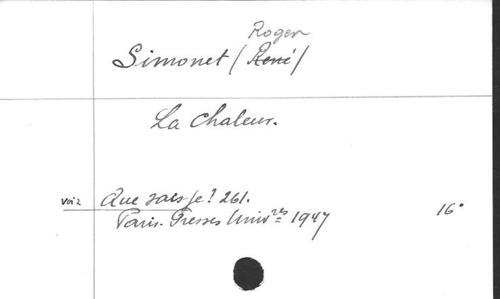 Roger
Simonet (René)
La Chaleur.
voir Que sais-je? 261.
Paris. Presses Univres 1947 16°